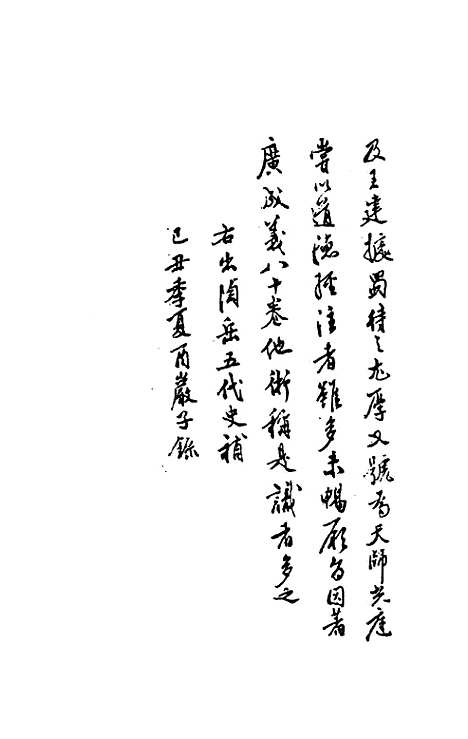 及王建據蜀待之尤厚又號爲天師光庭
嘗以道德經注者雖多未暢厥旨因著
廣成義八十卷他術稱是識者多之
右出陶岳五代史補
己丑季夏百巖子錄